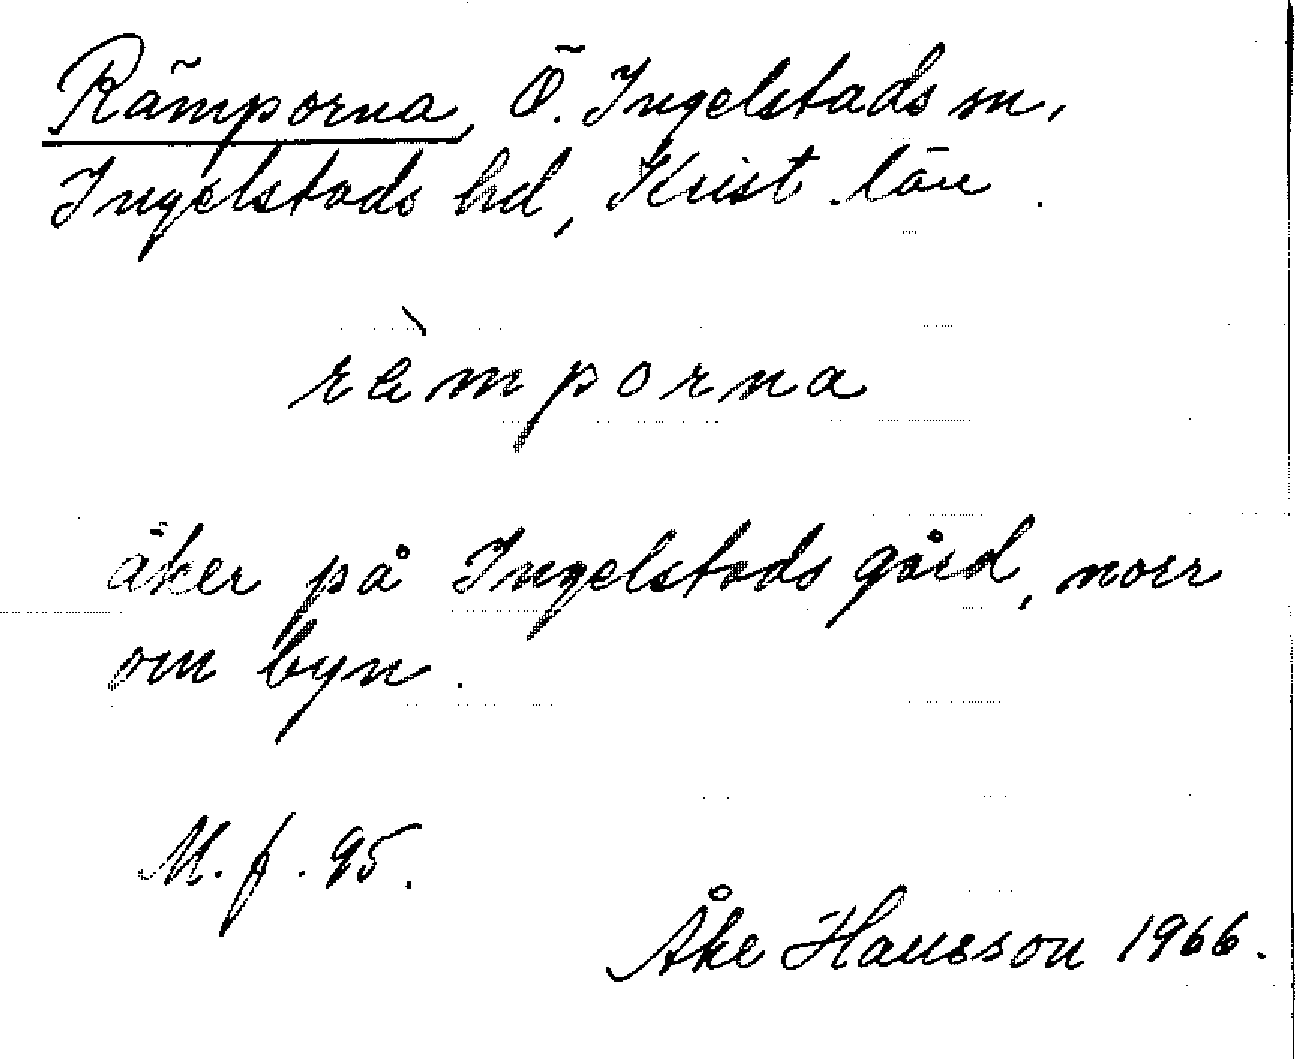 Rämporna, Ö. Ingelstads sn,
Ingelstads hd, Krist. län.
ràmporna
åker på Ingelstads gård, norr
om byn.
M. f. 95.
Åke Hansson 1966.